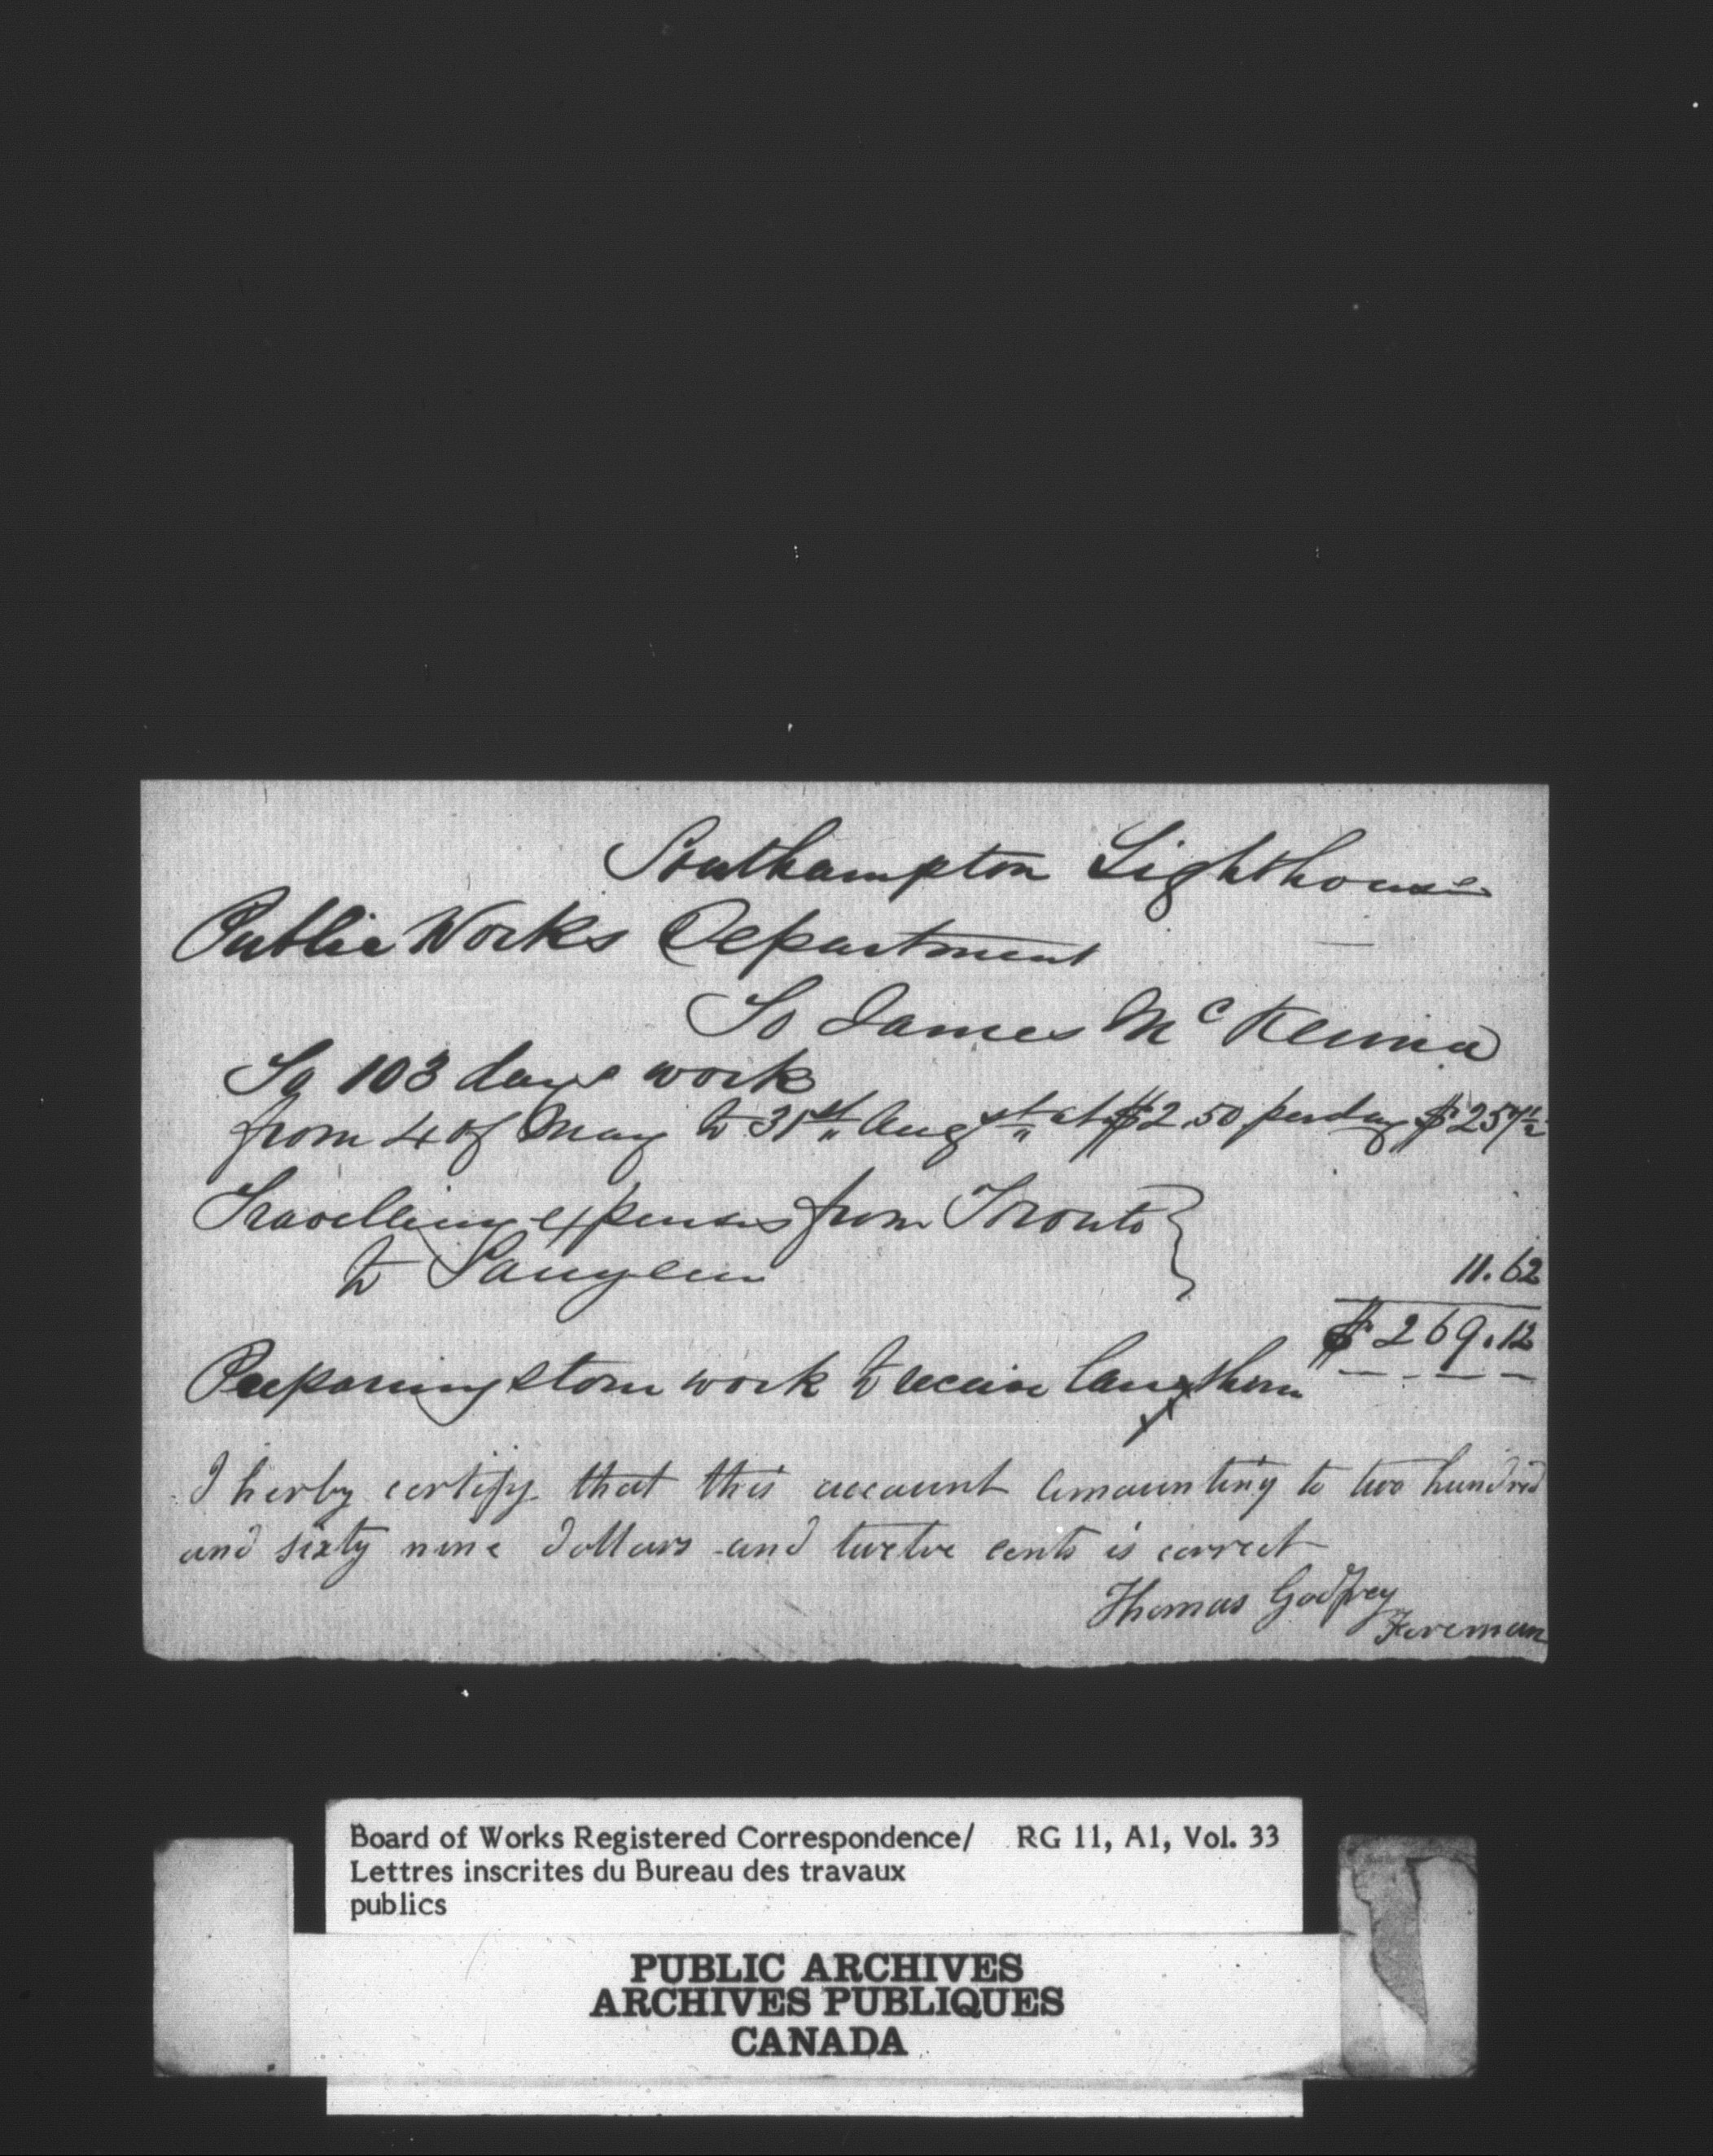 Southampton Lighthouse
Public Works Department
To James McKenna
To 103 days work
from 4 of May to 31st Augst at $2.50 per day $257½
Travelling expenses from Toronto
to Saugeen
11.62
$269.12
Preparing stone work to receive lanthern
I herby certify that this account amounting to two hundred
and sixty nine dollars and twelve cents is correct
Thomas Godfrey
Foreman
Board of Works Registered Correspondence/ RG 11, A1, Vol. 33
Lettres inscrites du Bureau des travaux
publics
PUBLIC ARCHIVES
ARCHIVES PUBLIQUES
CANADA